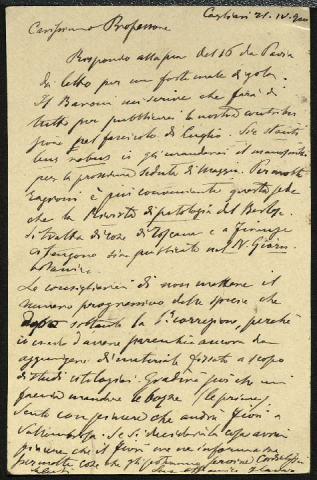 Cagliari 21. IV. 900
Carissimo Professore
Rispondo alla sua del 16 da Pavia
da letto per un forte male di gola.
Il Baroni mi scrive che farà di
tutto per pubblicare la nostra contribu
zione nel fascicolo di Luglio. Sic stanti
bus rebus io gli manderei il manoscritto
per la prossima seduta di maggio. Per molte
ragioni è più conveniente questa sede
che la Rivista di patologia del Berlese.
Si tratta di cose di Toscana e a Firenze
ci tengono sia pubblicato nel N. Giorn.
botanico.
La consiglierei di non mettere il
numero progressivo delle specie che
dopo soltanto la 1ª correzione, perché
io credo d'avere parecchio ancora da
aggiungere di materiale fissato a scopo
di studi citologici. Gradirei poi che mi
facesse mandare le bozze (le prime).
Sento con piacere che andrà Fiori a
Vallombrosa. Se si deciderà la cosa avrei
piacere che il Fiori me ne informasse
per molte cose che gli potranno